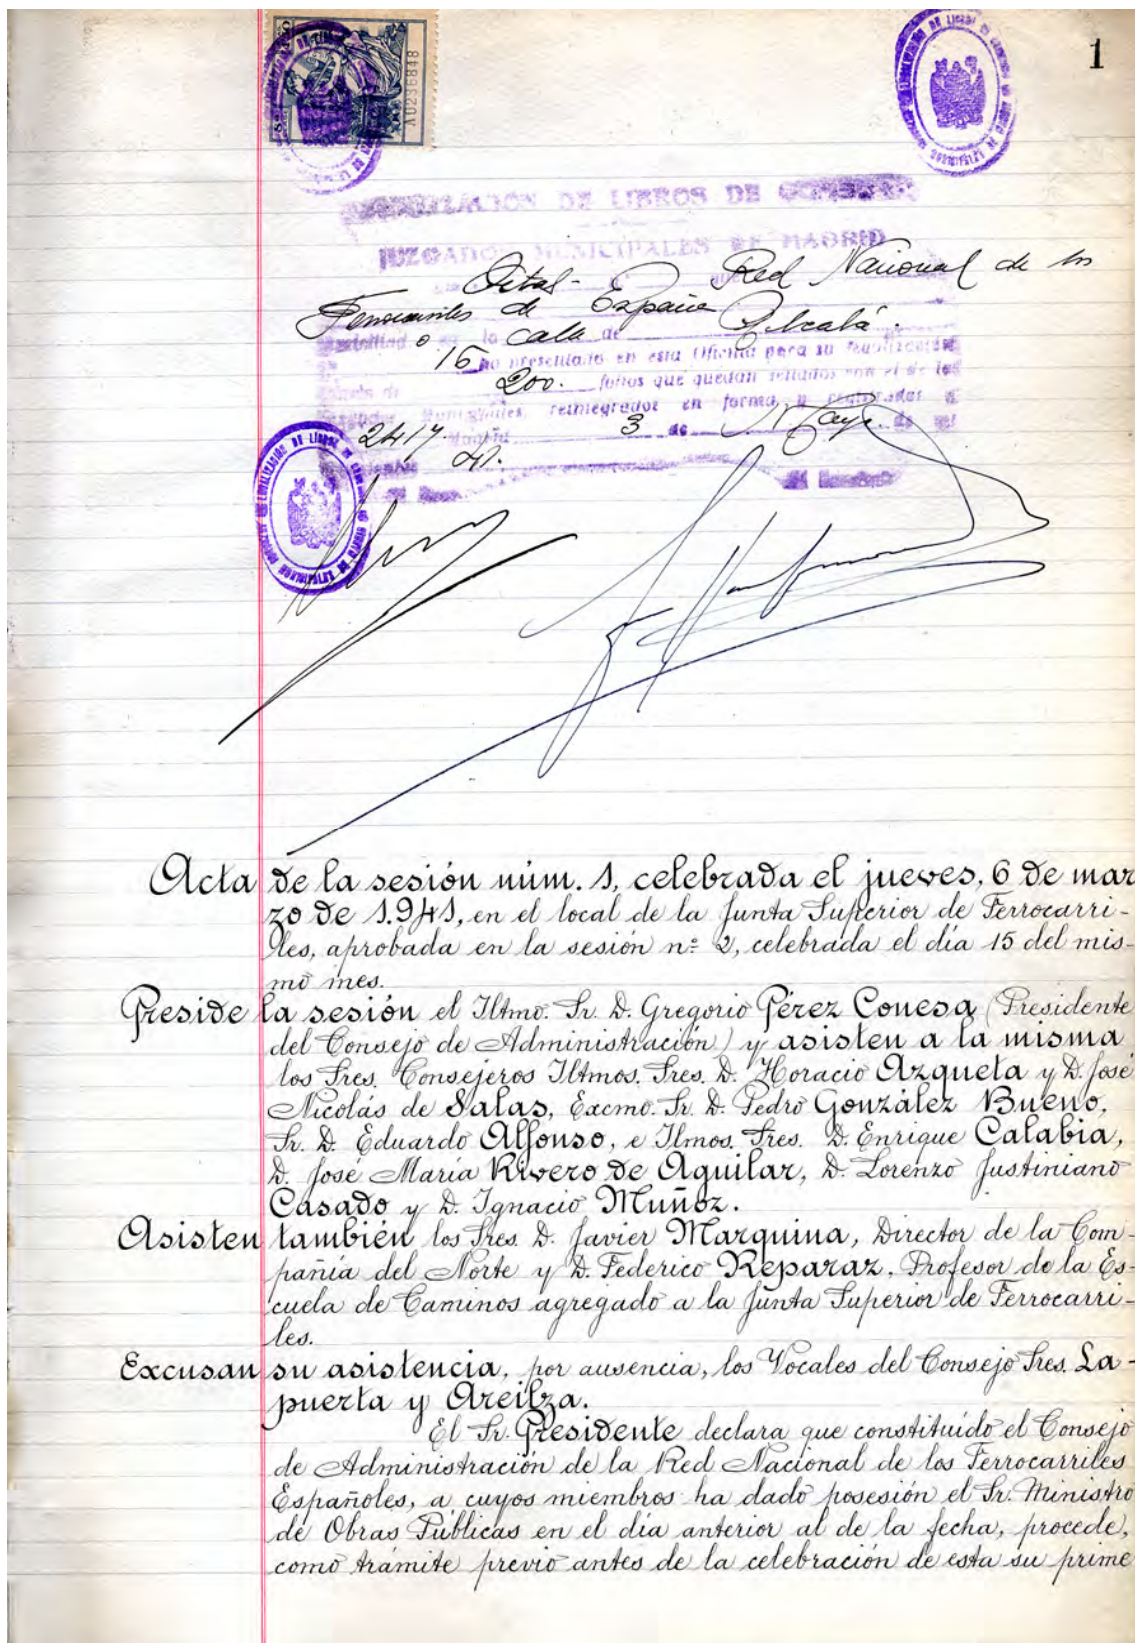 1
A0236848
LEGALIZACION DE LIBROS DE COMERCIO
JUZGADOS MUNICIPALES DE MADRID
Red Nacional de los
Ferrocarriles de España
la calle de Alcalá.
16 ha presentado en esta Oficina para su legalización
200. folios que quedan sellados con el de los
Juzgados Municipales, reintegrados en forma y registrados
2417. Madrid 3 de Mayo de mil
41.
Acta de la sesión núm. 1, celebrada el jueves, 6 de mar
zo de 1.941, en el local de la Junta Superior de Ferrocarri-
les, aprobada en la sesión nº 2, celebrada el día 15 del mis-
mo mes.
Preside la sesión el Iltmo. Sr. D. Gregorio Pérez Conesa (Presidente
del Consejo de Administración) y asisten a la misma
los Sres. Consejeros Iltmos. Sres. D. Horacio Azqueta y D. José
Nicolás de Salas, Excmo. Sr. D. Pedro González Bueno,
Sr. D. Eduardo Alfonso, e Ilmos. Sres. D. Enrique Calabia,
D. José María Rivero de Aguilar, D. Lorenzo Justiniano
Casado y D. Ignacio Muñoz.
Asisten también los Sres. D. Javier Marquina, Director de la Com-
pañía del Norte y D. Federico Reparaz, Profesor de la Es-
cuela de Caminos agregado a la Junta Superior de Ferrocarri-
les.
Excusan su asistencia, por ausencia, los Vocales del Consejo Sres. La-
puerta y Areilza.
El Sr. Presidente declara que constituído el Consejo
de Administración de la Red Nacional de los Ferrocarriles
Españoles, a cuyos miembros ha dado posesión el Sr. Ministro
de Obras Públicas en el día anterior al de la fecha, procede,
como trámite previo antes de la celebración de esta su prime